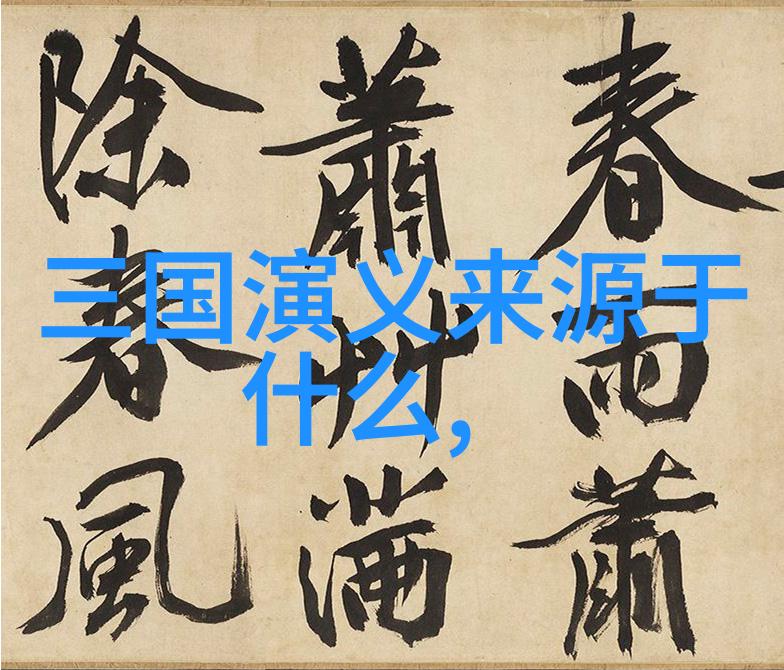 三国演义来源于
什么,
春雨蕭
蕭艸滿
除春風